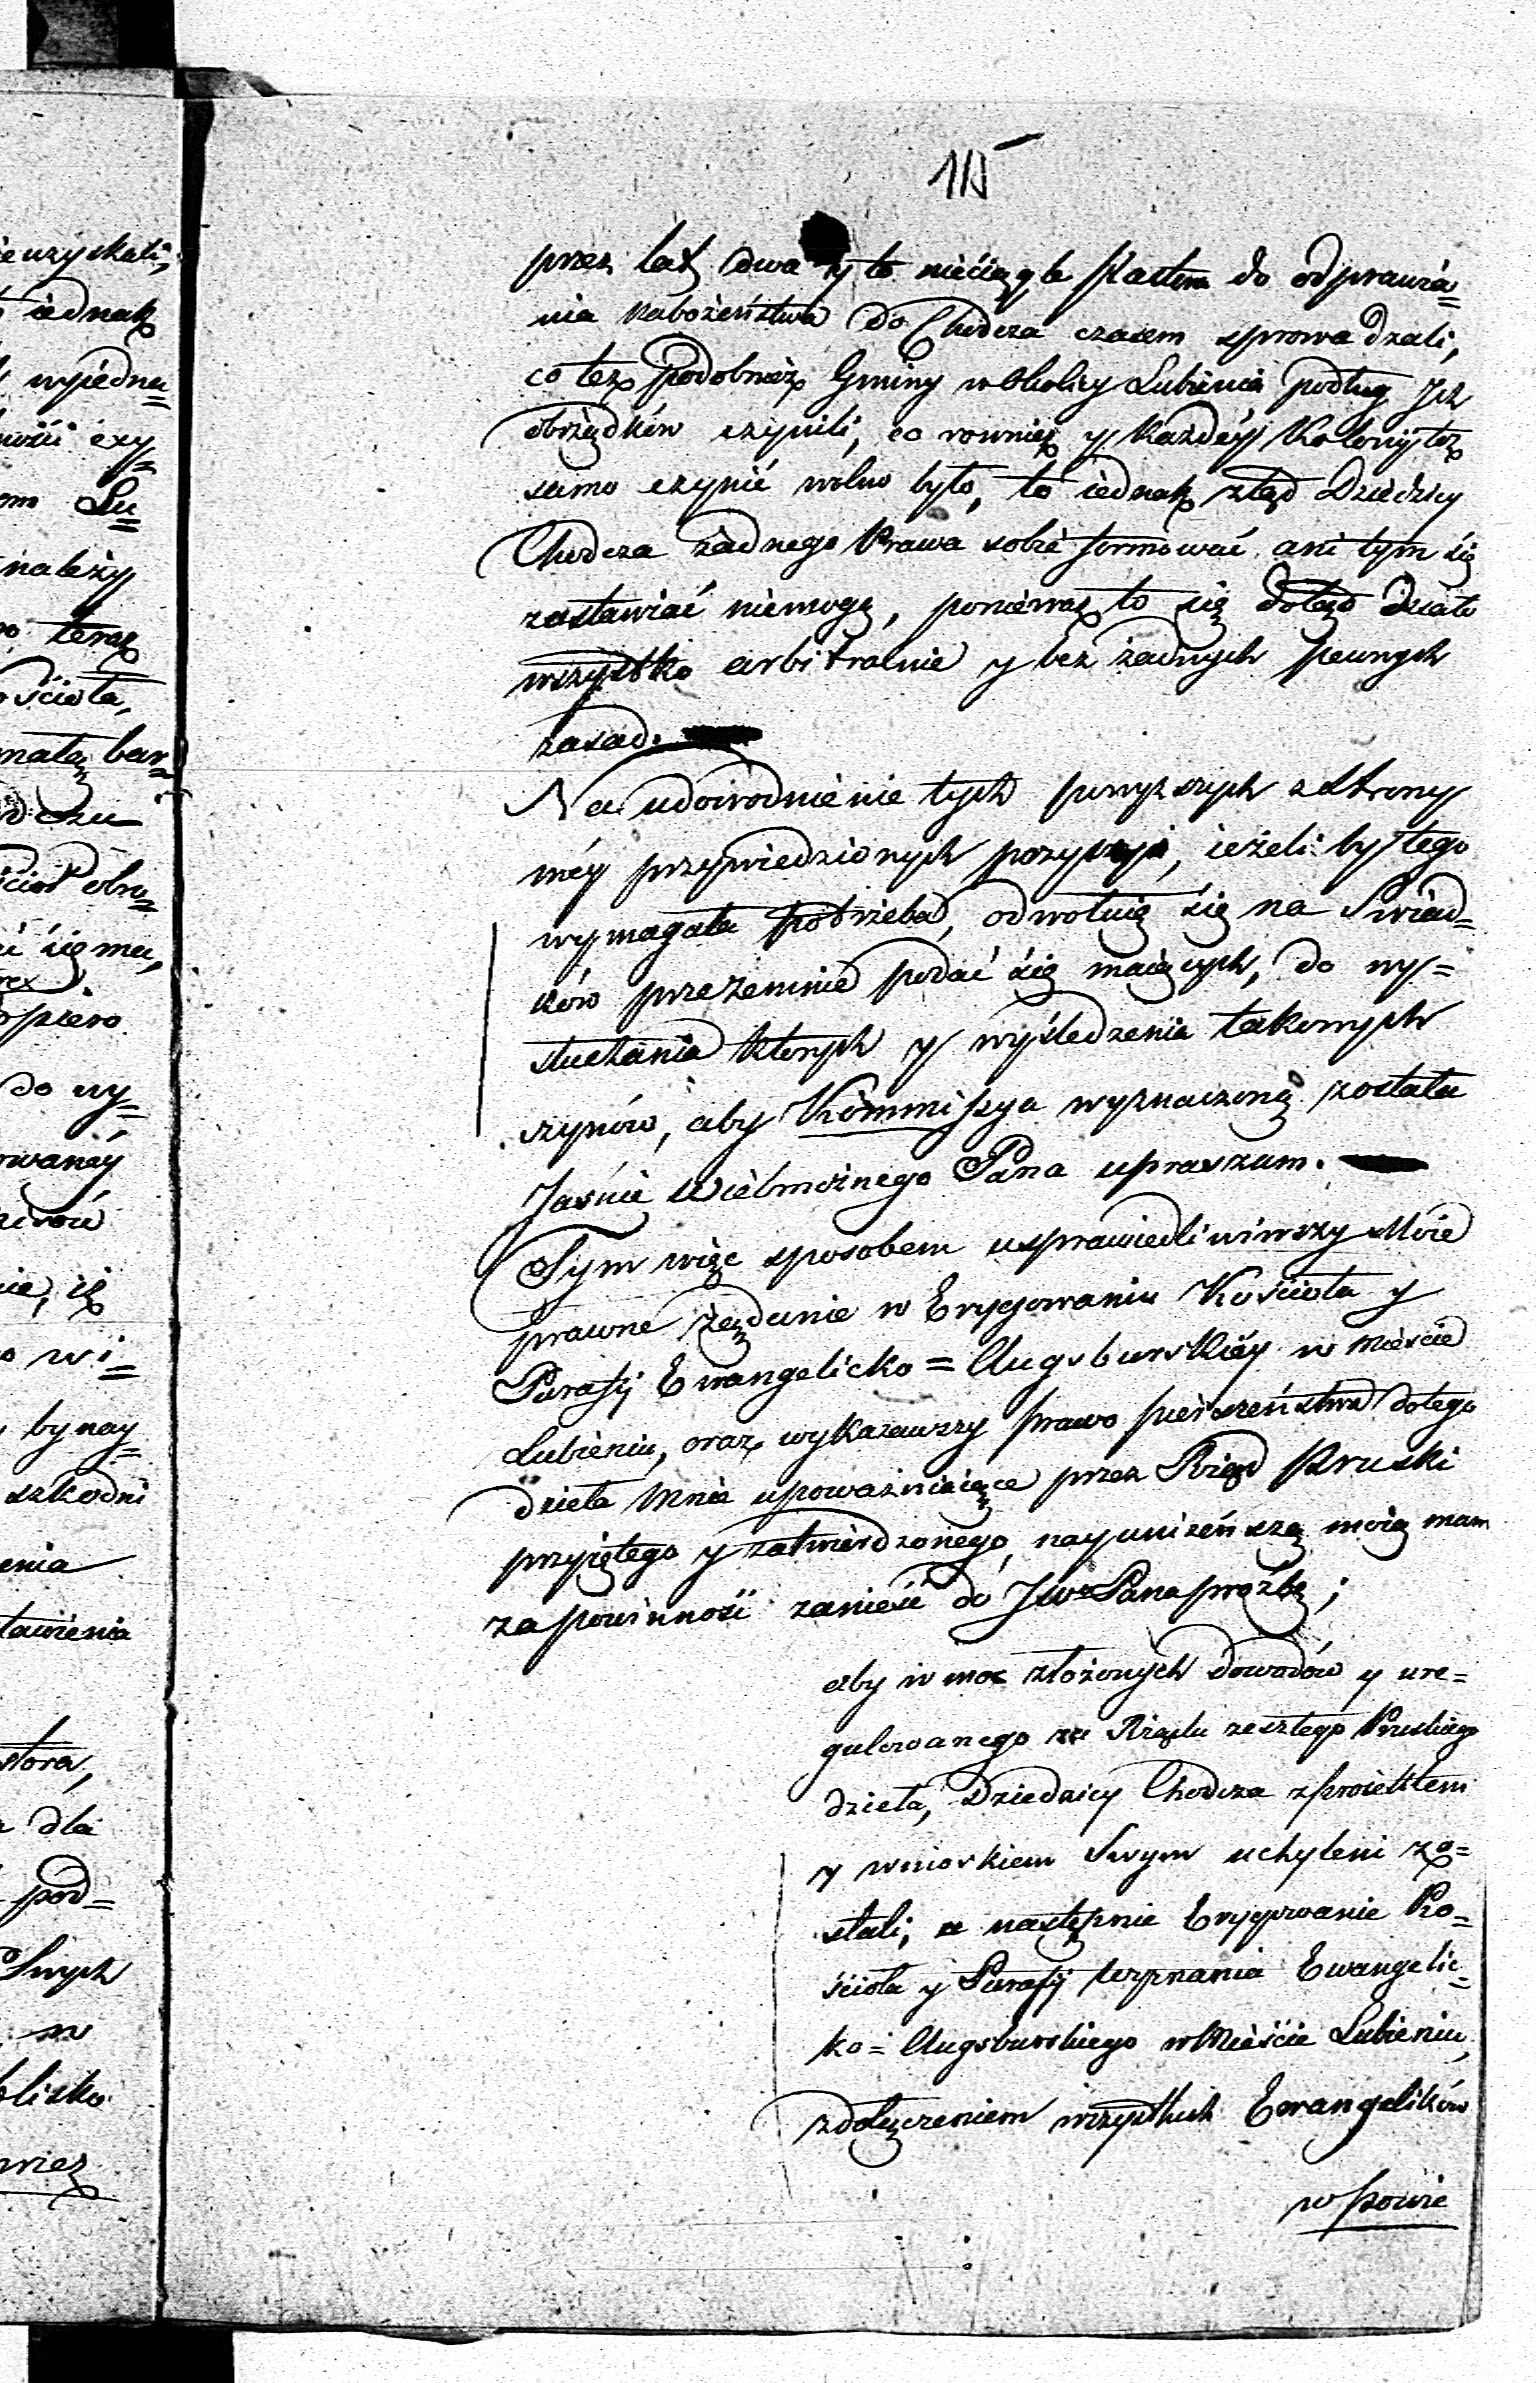 115
przez lat dwa y to nieciągle Pastora do odprawia=
nia nabożeństwa do Chodcza czasem sprowadzali,
co też podobnież Gminy w Okolicy Lubienia podług Jch
obrządków czynili, co rownież y każdéy Kolonij toż
samo czynić wolno było, to iednak ztąd Dziedzicy
Chodcza żadnego Prawa sobie formować ani tym się
zastawiać niemogą, ponieważ to się dotąd działo
wszystko arbitralnie y bez żadnych pewnych
zasad.
Na udowodnienie tych powyższych z strony
méy przywiedzionych pozycyi, ieżeli by tego
wymagała potrzeba, odwołuię się na Swiad=
ków przezemnie podać się maiących, do wy=
słuchania ktorych y wyśledzenia takowych
czynów, aby Kommissya wyznaczoną została
Jaśnie Wielmożnego Pana upraszam.
Tym więc sposobem usprawiedliwiwszy Moie
prawne żądanie w Erygowaniu Kościoła y
Parafij Ewangelicko=Augsburskiéy w mieście
Lubieniu, oraz wykazawszy prawo pierszeństwa do tego
dzieła mnie upoważniaiące przez Rząd Pruski
przyiętego y zatwierdzonego, nayuniżeńszą moią mam
za powinność zanieść do JW Pana prożbę;
aby w moc złożonych dowodów y ure=
gulowanego za Rządu zeszłego Pruskiego
dzieła, Dziedzicy Chodcza z proiektem
y wnioskiem Swym uchyleni zo=
stali, a następnie Erygowanie Ko=
ścioła y Parafij wyznania Ewangelic=
ko=Augsburskiego w Mieście Lubieniu,
z dołączeniem wszystkich Ewangelików
w powie
ie uzyskali,
iednak
wyiedna=
exy=
Lu=
należy
teraz
ościoła,
małą bar=
się ma,
do wy=
owanéy
ie, iż
wi=
by nay=
szkodni
enia
tawienia
stora,
dla
pod=
Swych
w
blisko